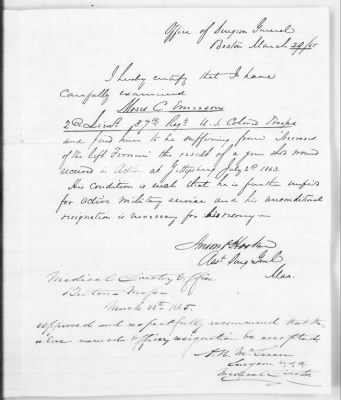 Office of Surgeon General
Boston March 28/65
I hereby certify that I have
carefully examined
Moses C. Emerson
2d Lieut. 37th Regt. U.S. Colored Troops
and find him to be suffering from
of the left the result of a gun shot wound
received in Action at Gettysburg July 2d 1863.
His condition is such that he is further unfit
for active military service and his unconditional
resignation is necessary for his recovery
Asst. Surg. Genl.
Mass.
Medical Office
Boston Mass
March 28th 1865.
approved and respectfully recommend that the
above named officers resignation be accepted
Surgeon USA
Medical Director